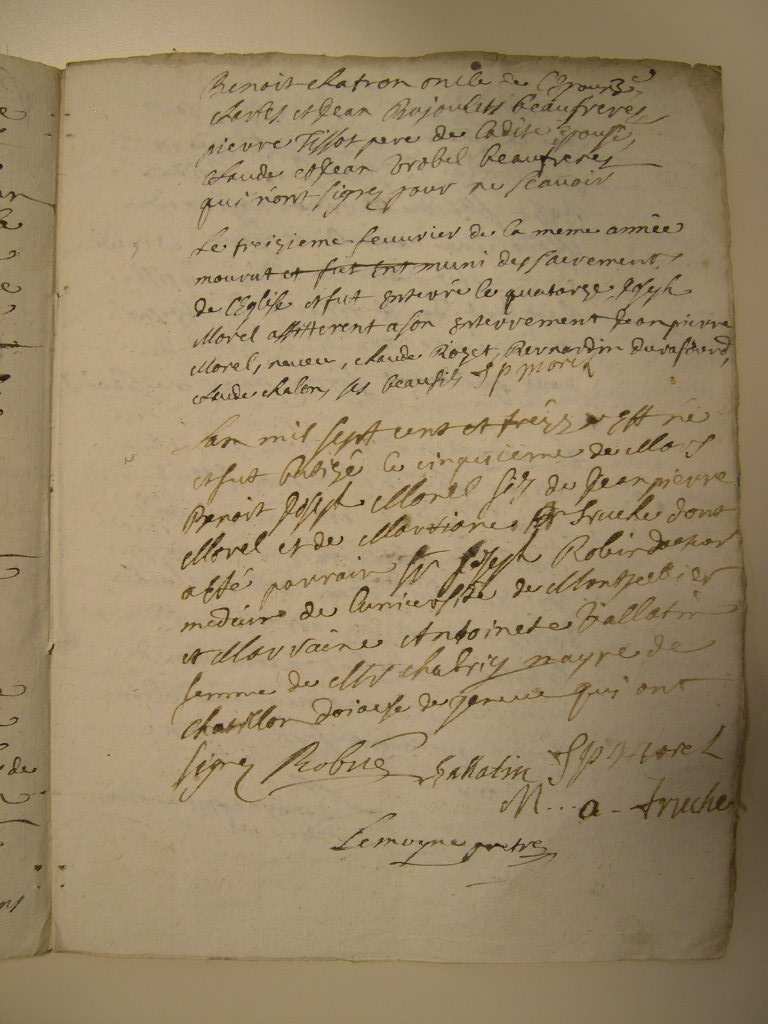 Benoit chatron oncle de l'epoux
charles et Jean Bujoulets beaufreres
pierre Tissot pere de ladite epouse
claude et Jean beaufreres
qui n'ont signez pour ne scavoir
Le treizieme feuvrier de la meme année
mourut et fut muni des sacrements
de l'Eglise et fut enterré le quatorze Joseph
Morel assisterent a son enterrement Jeanpierre
Morel, neveu, claude Rozet, Bernardin
claude chalon, ses beaufils J p morel
Lan mil sept cent et treize est né
et fut batizé le cinquieme de Mars
Benoit Joseph Morel fils de Jeanpierre
Morel et de Marianne Truche dont
a été parrain Sr Joseph Robin docteur
medecin de l'université de Montpellier
et Marraine Antoinete Vallatin
femme de Mr chabrey mayre de
chatillon doiocese de geneve qui ont
signez Robin Vallatin J p Morel
M...a Truche
Lemoyne pretre